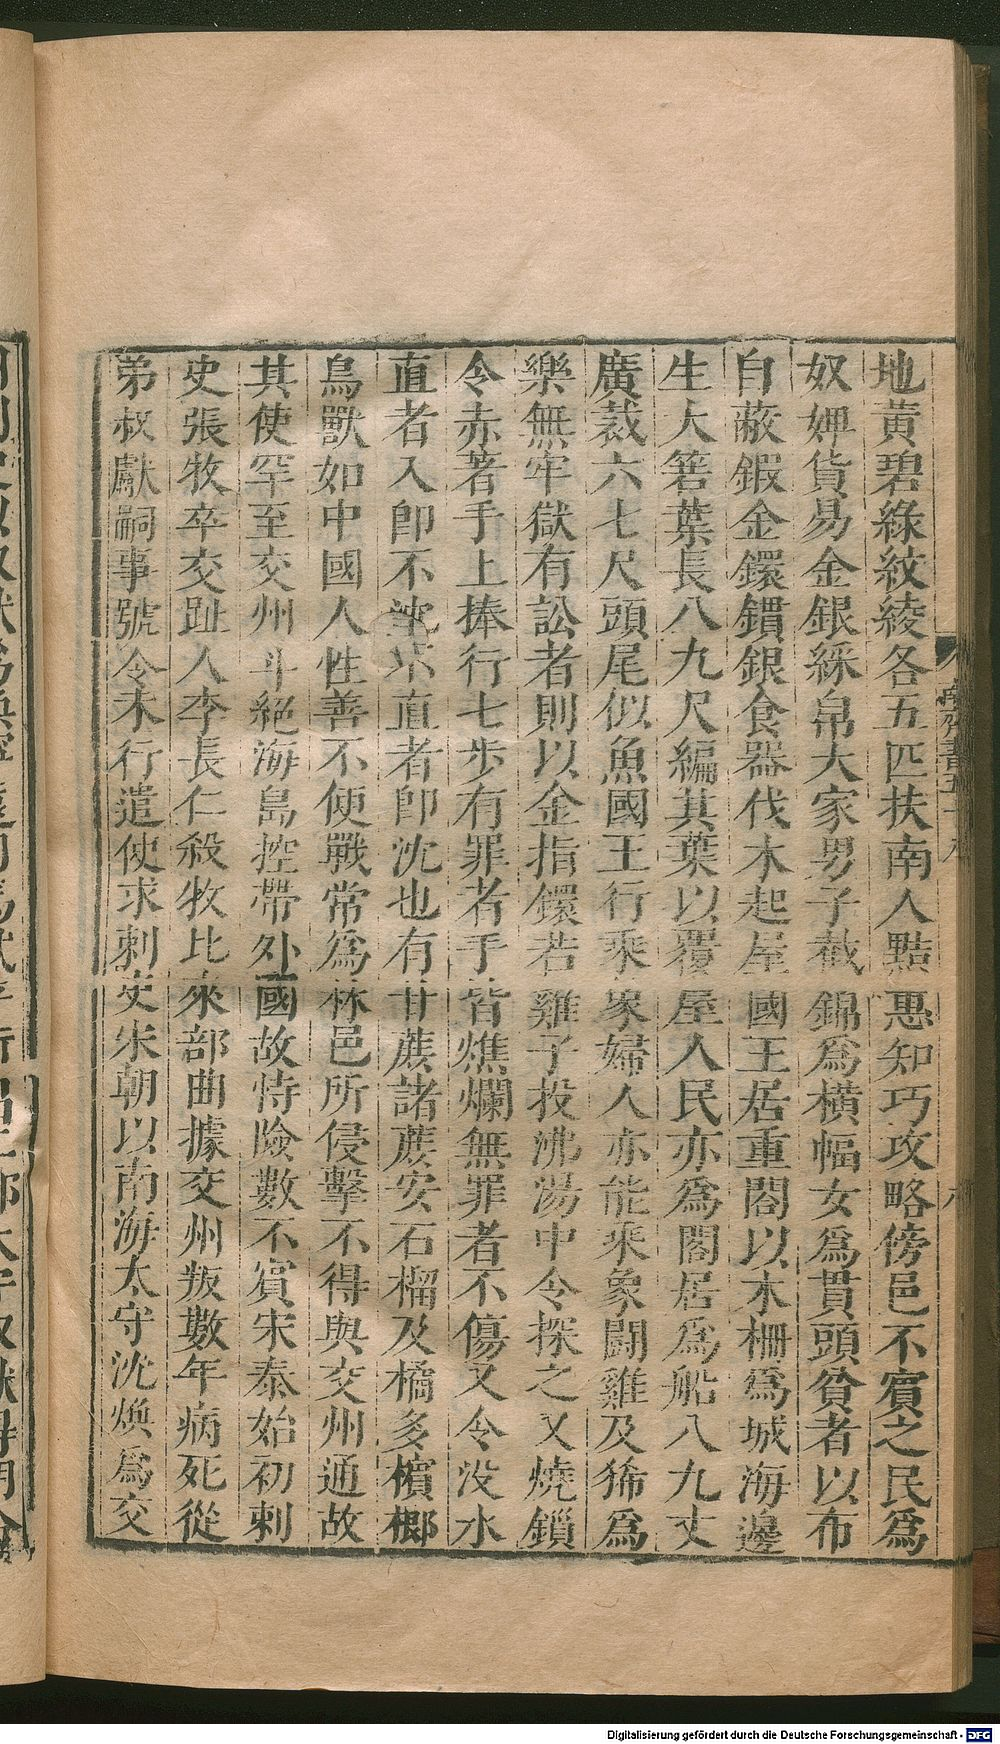 地黃碧綠紋綾各五匹扶南人黠惠知巧攻略傍邑不賓之民爲
奴婢貨易金銀綵帛大家男子截錦爲橫幅女爲貫頭貧者以布
自蔽鍜金鐶鏆銀食器伐木起屋國王居重閣以木柵爲城海邊
生大箬葉長八九尺編其葉以覆屋人民亦爲閣居爲船八九丈
廣裁六七尺頭尾似魚國王行乘象婦人亦能乘象鬬雞及狶爲
樂無牢獄有訟者則以金指鐶若雞子投沸湯中令探之又燒鎻
令赤著手上捧行七步有罪者手皆燋爛無罪者不傷又令没水
直者入卽不沈不直者卽沈也有甘蔗諸蔗安石榴及橘多檳榔
鳥獸如中國人性善不便戰常爲林邑所侵擊不得與交州通故
其使罕至交州斗絕海島控帶外國故恃險數不賓宋泰始初刺
史張牧卒交趾人李長仁殺牧北來部曲據交州叛數年病死從
弟叔獻嗣事號令未行遣使求刺史宋朝以南海太守沈煥爲交
Digitalisierung gefördert durch die Deutsche Forschungsgemeinschaft - DFG